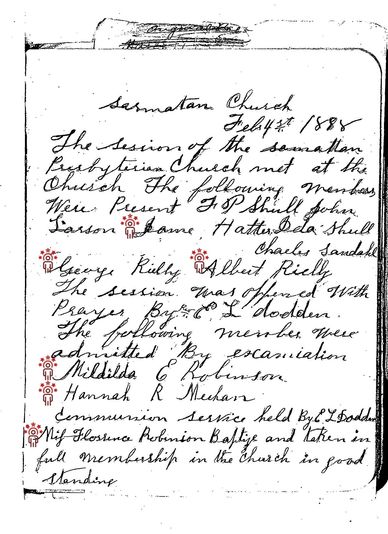 Sarmatan Church
Feb 4st 1888
The Session of the samattan
Presbyterian Church met at the
Church The following members
Were Present F P Shull John
Larson Jame Hatter Ida Shull
Charles Sandahl
George Rielly Albert Rielly
The session was oppened With
Prayer By E L Dodden.
The following member were
admitted By examiation
Mildilda E Robinson
Hannah R Meehan
Communion Service held By E L Dodden
Miss Florence Robinson Baptize and taken in
full membership in the Church in good
Standing